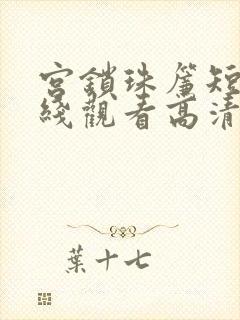 宮鎖珠簾短
綫觀看高清
葉十七